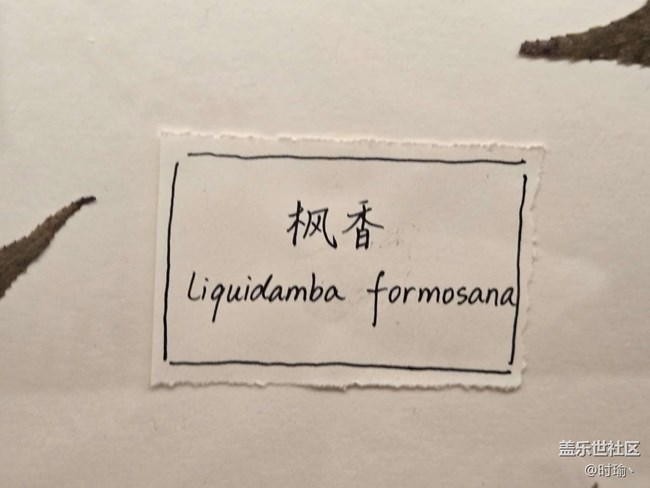 枫香
Liquidamba formosana
盖乐世社区
@时瑜丶